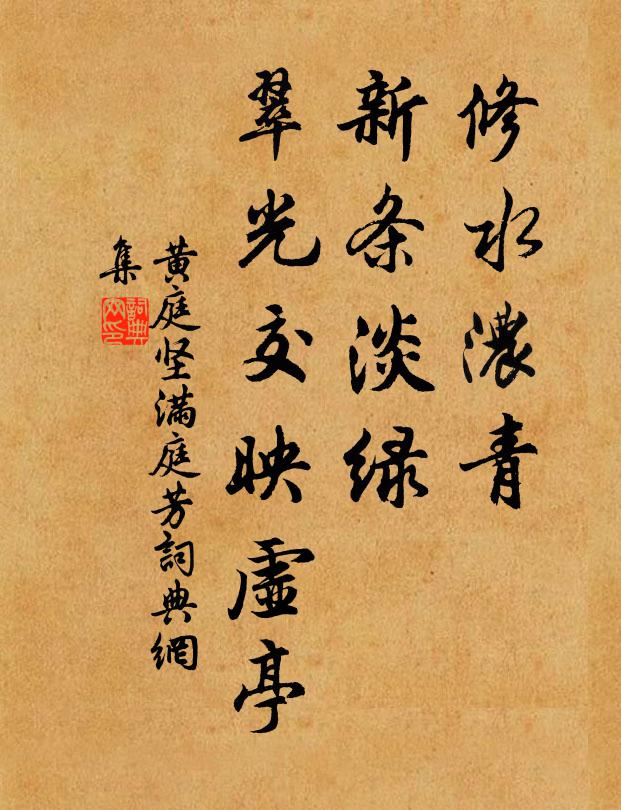 修水濃青
新条淡绿
翠光交映虚亭
黄庭坚满庭芳詞典網
集
詞典網印